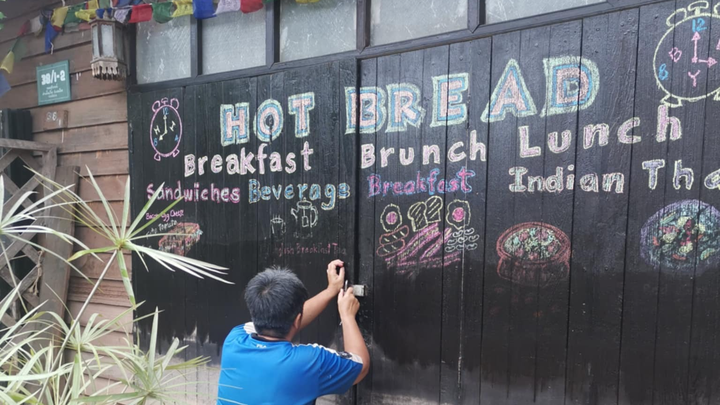 39/1-2
HOT BREAD
Breakfast Brunch Lunch
Sandwiches Beverage Breakfast Indian Tha
12